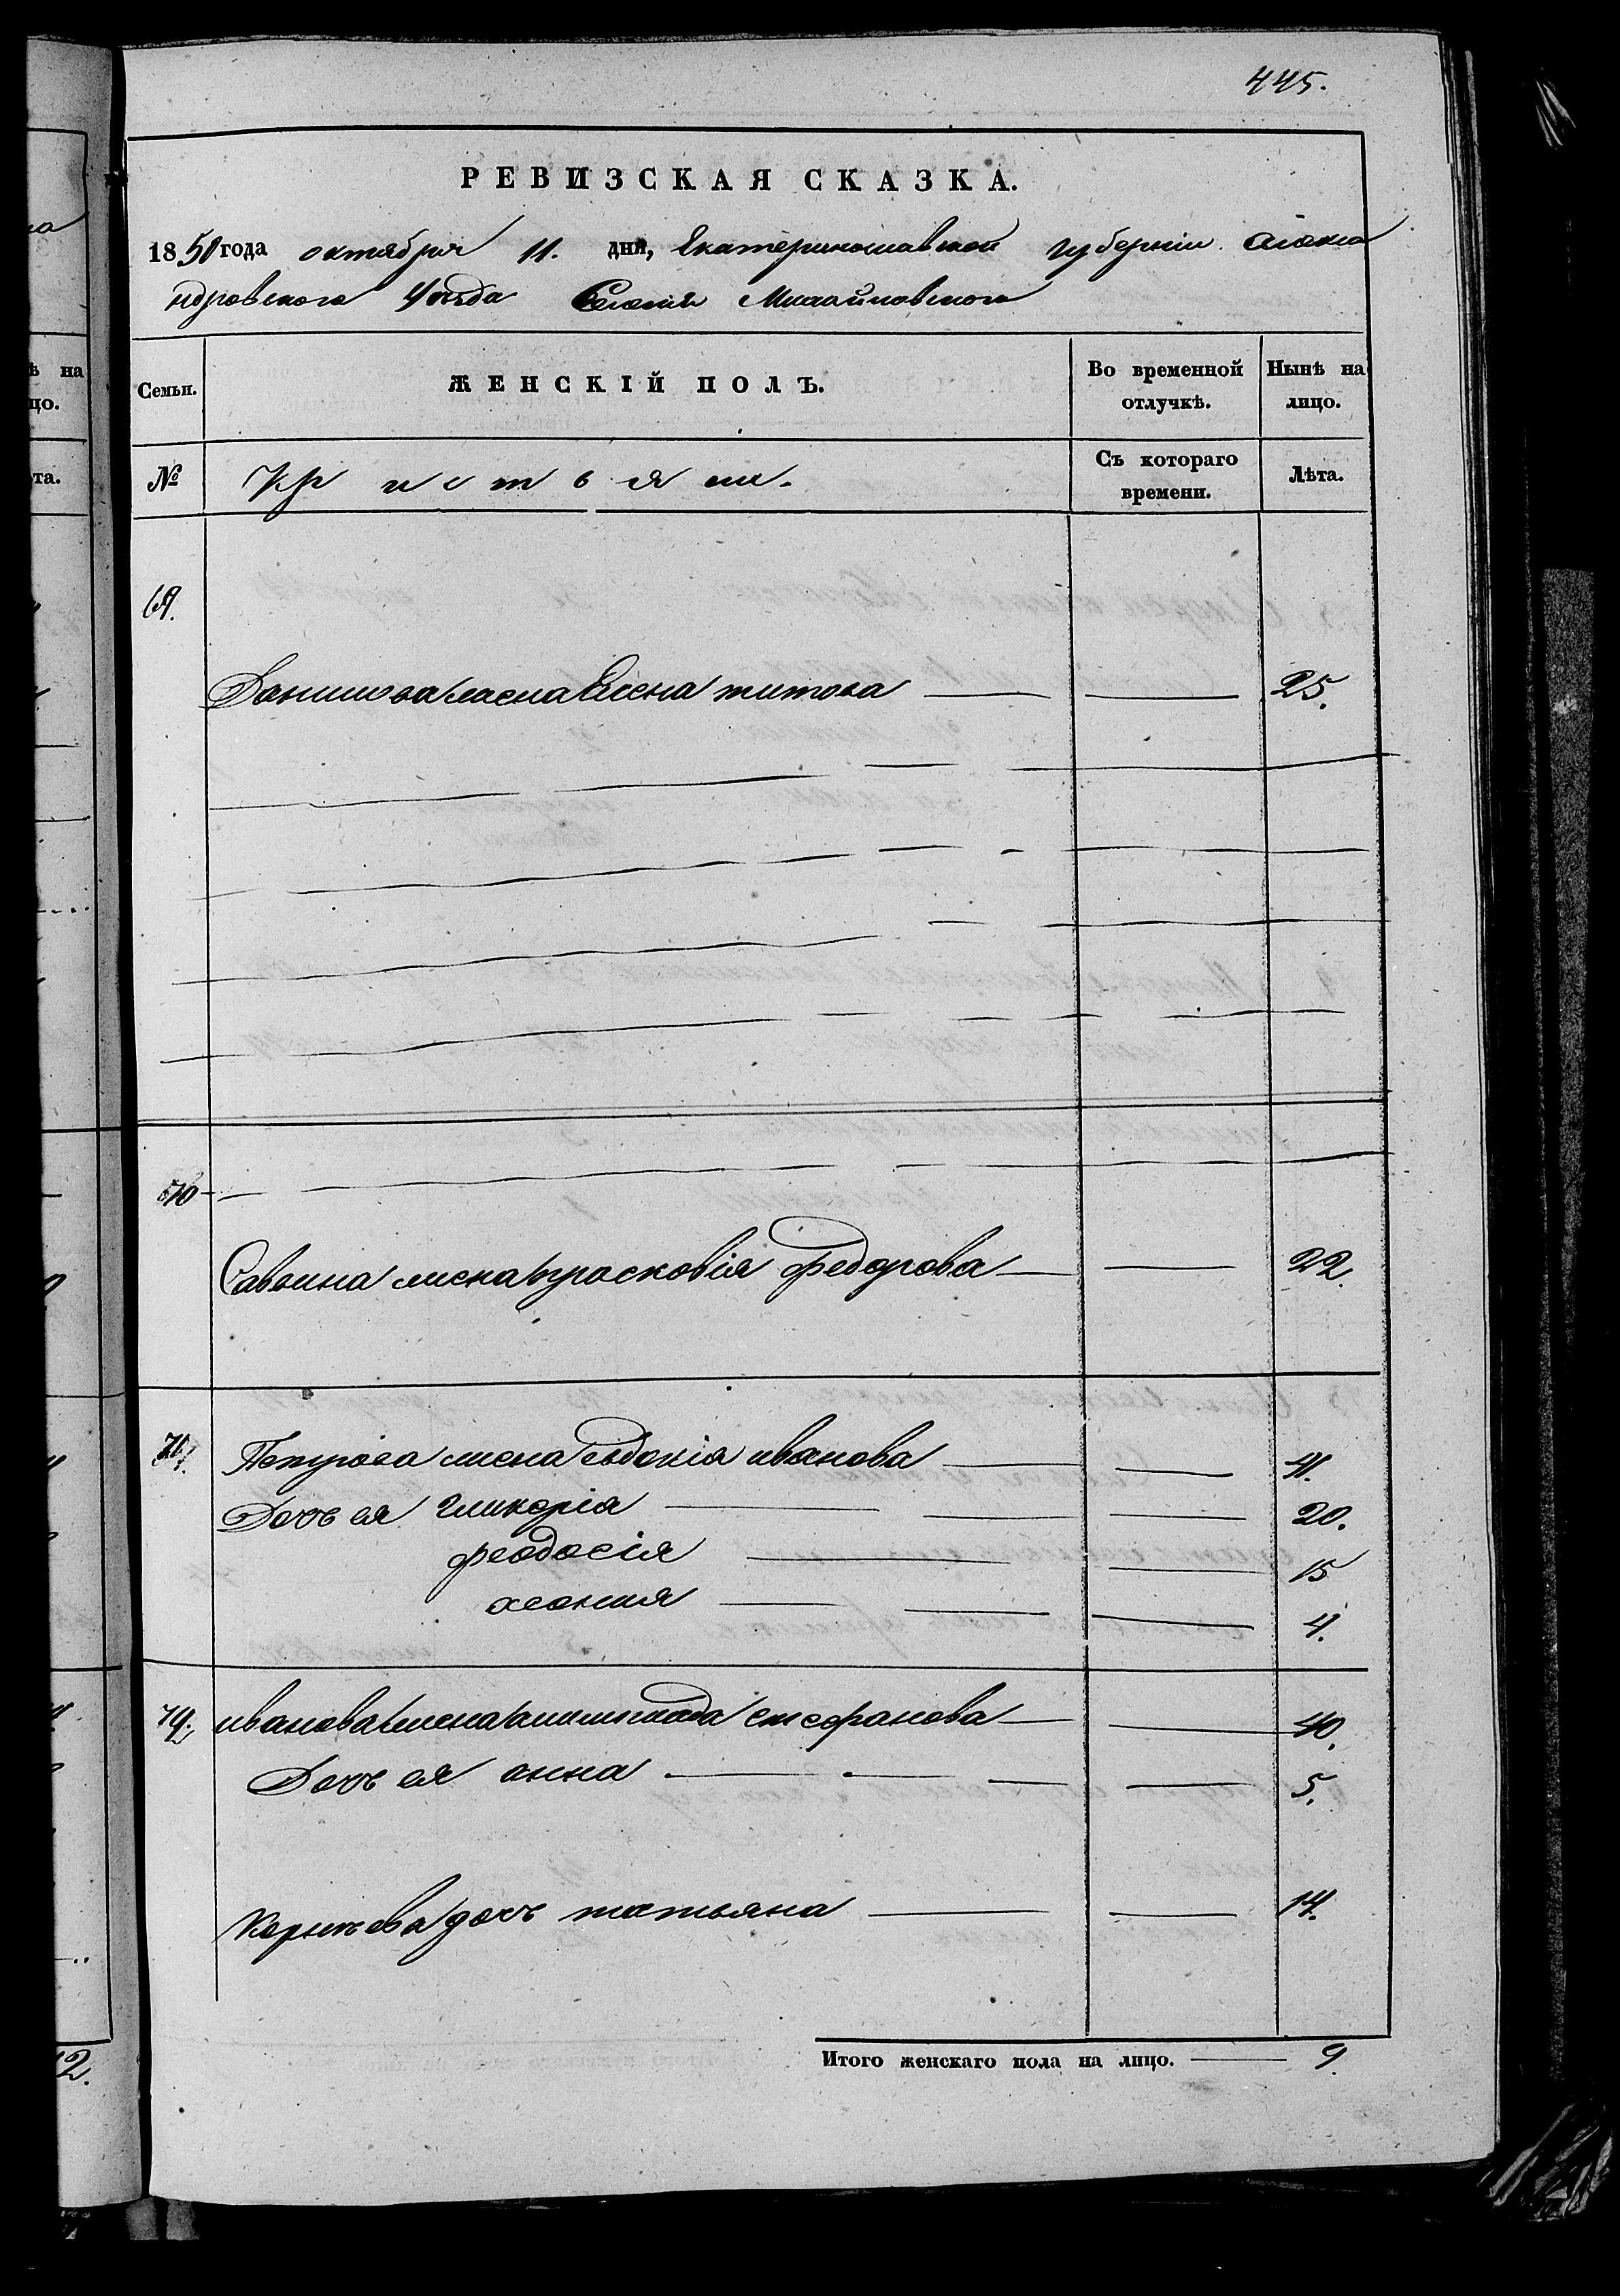 445.
РЕВИЗСКАЯ СКАЗКА.
1850 года октября 11. дня, Екатеринославской губерніи Алекса
ндровского Уезда Селенія Михайловского
Семьи.
ЖЕНСКІЙ ПОЛЪ.
Во временной отлучкѣ.
Нынѣ на лицо.
№
Съ котораго времени.
Лѣта.
69.
Данилова жена Елена титова 25.
70
Саввина жена прасковія федорова 22.
71.
Петрова жена евдокія иванова 41.
Дочь ея гликерія 20.
феодосія 15
ксенія 4.
72.
иванова жена стефанова 40.
Дочь ея анна 5.
дочь татьяна 14.
Итого женскаго пола на лицо. 9.
ѣ на
цо.
та.
12.